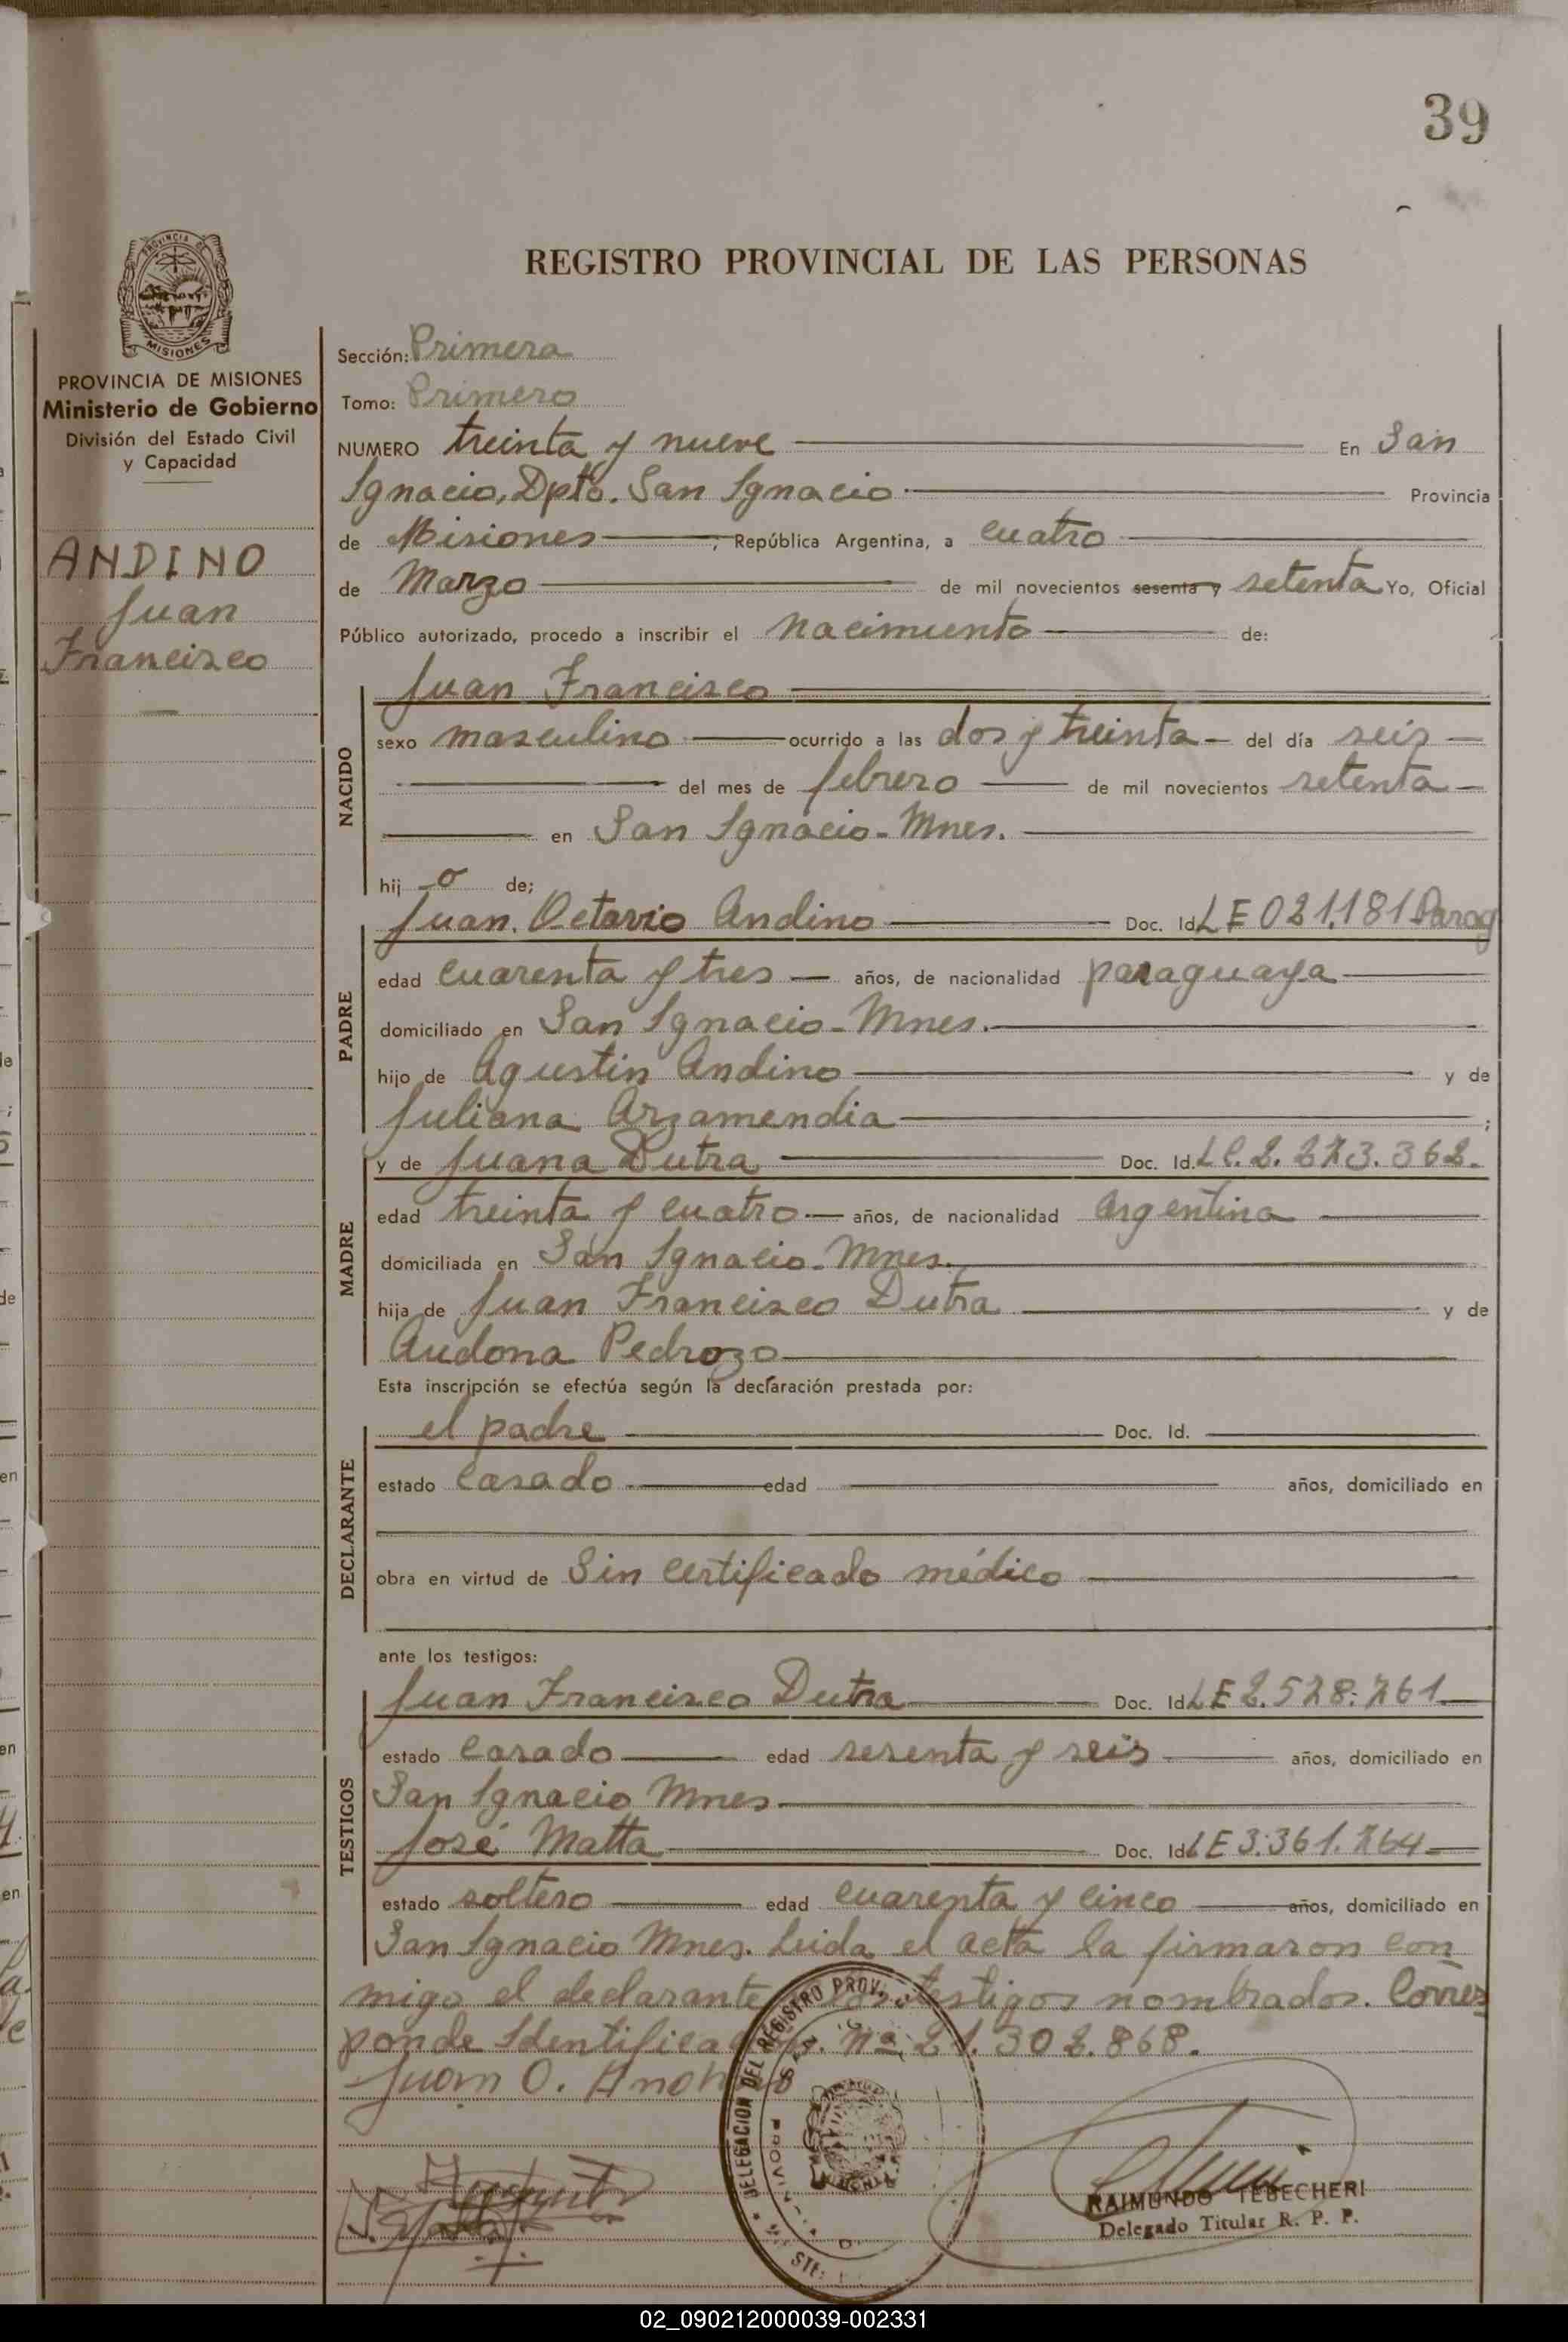 39
REGISTRO PROVINCIAL DE LAS PERSONAS
PROVINCIA DE
MISIONES
PROVINCIA DE MISIONES
Ministerio de Gobierno
División del Estado Civil
y Capacidad
ANDINO
Juan
Francisco
Sección: Primera
Tomo: Primero
NUMERO treinta y nueve En San
Ignacio, Dpto. San Ignacio Provincia
de Misiones, República Argentina, a cuatro
de Marzo de mil novecientos sesenta y setenta Yo, Oficial
Público autorizado, procedo a inscribir el nacimiento de:
NACIDO
Juan Francisco
sexo masculino ocurrido a las dos y treinta del día seis
del mes de febrero de mil novecientos setenta
en San Ignacio - Mnes.
hij o de;
PADRE
Juan Octavio Andino Doc. Id. LE 021.181 Parag
edad cuarenta y tres años, de nacionalidad paraguaya
domiciliado en San Ignacio - Mnes.
hijo de Agustin Andino y de
Juliana Arzamendia ;
MADRE
y de Juana Dutra Doc. Id. LC. 2.273.362.
edad treinta y cuatro años, de nacionalidad Argentina
domiciliada en San Ignacio - Mnes.
hija de Juan Francisco Dutra y de
Audona Pedrozo
Esta inscripción se efectúa según la declaración prestada por:
DECLARANTE
el padre Doc. Id.
estado casado edad años, domiciliado en
obra en virtud de Sin certificado médico
ante los testigos:
TESTIGOS
Juan Francisco Dutra Doc. Id. LE 2.528.761
estado casado edad sesenta y seis años, domiciliado en
San Ignacio Mnes
José Matta Doc. Id. LE 3.361.764
estado soltero edad cuarenta y cinco años, domiciliado en
San Ignacio Mnes. Leida el acta la firmaron con
migo el declarante testigos nombrados. Corres
ponde Identificac Nº 21.302.868.
Juan O. Andino
DELEGACION DEL REGISTRO PROV.
RAIMUNDO TEBECHERI
Delegado Titular R. P. P.
02_090212000039-002331